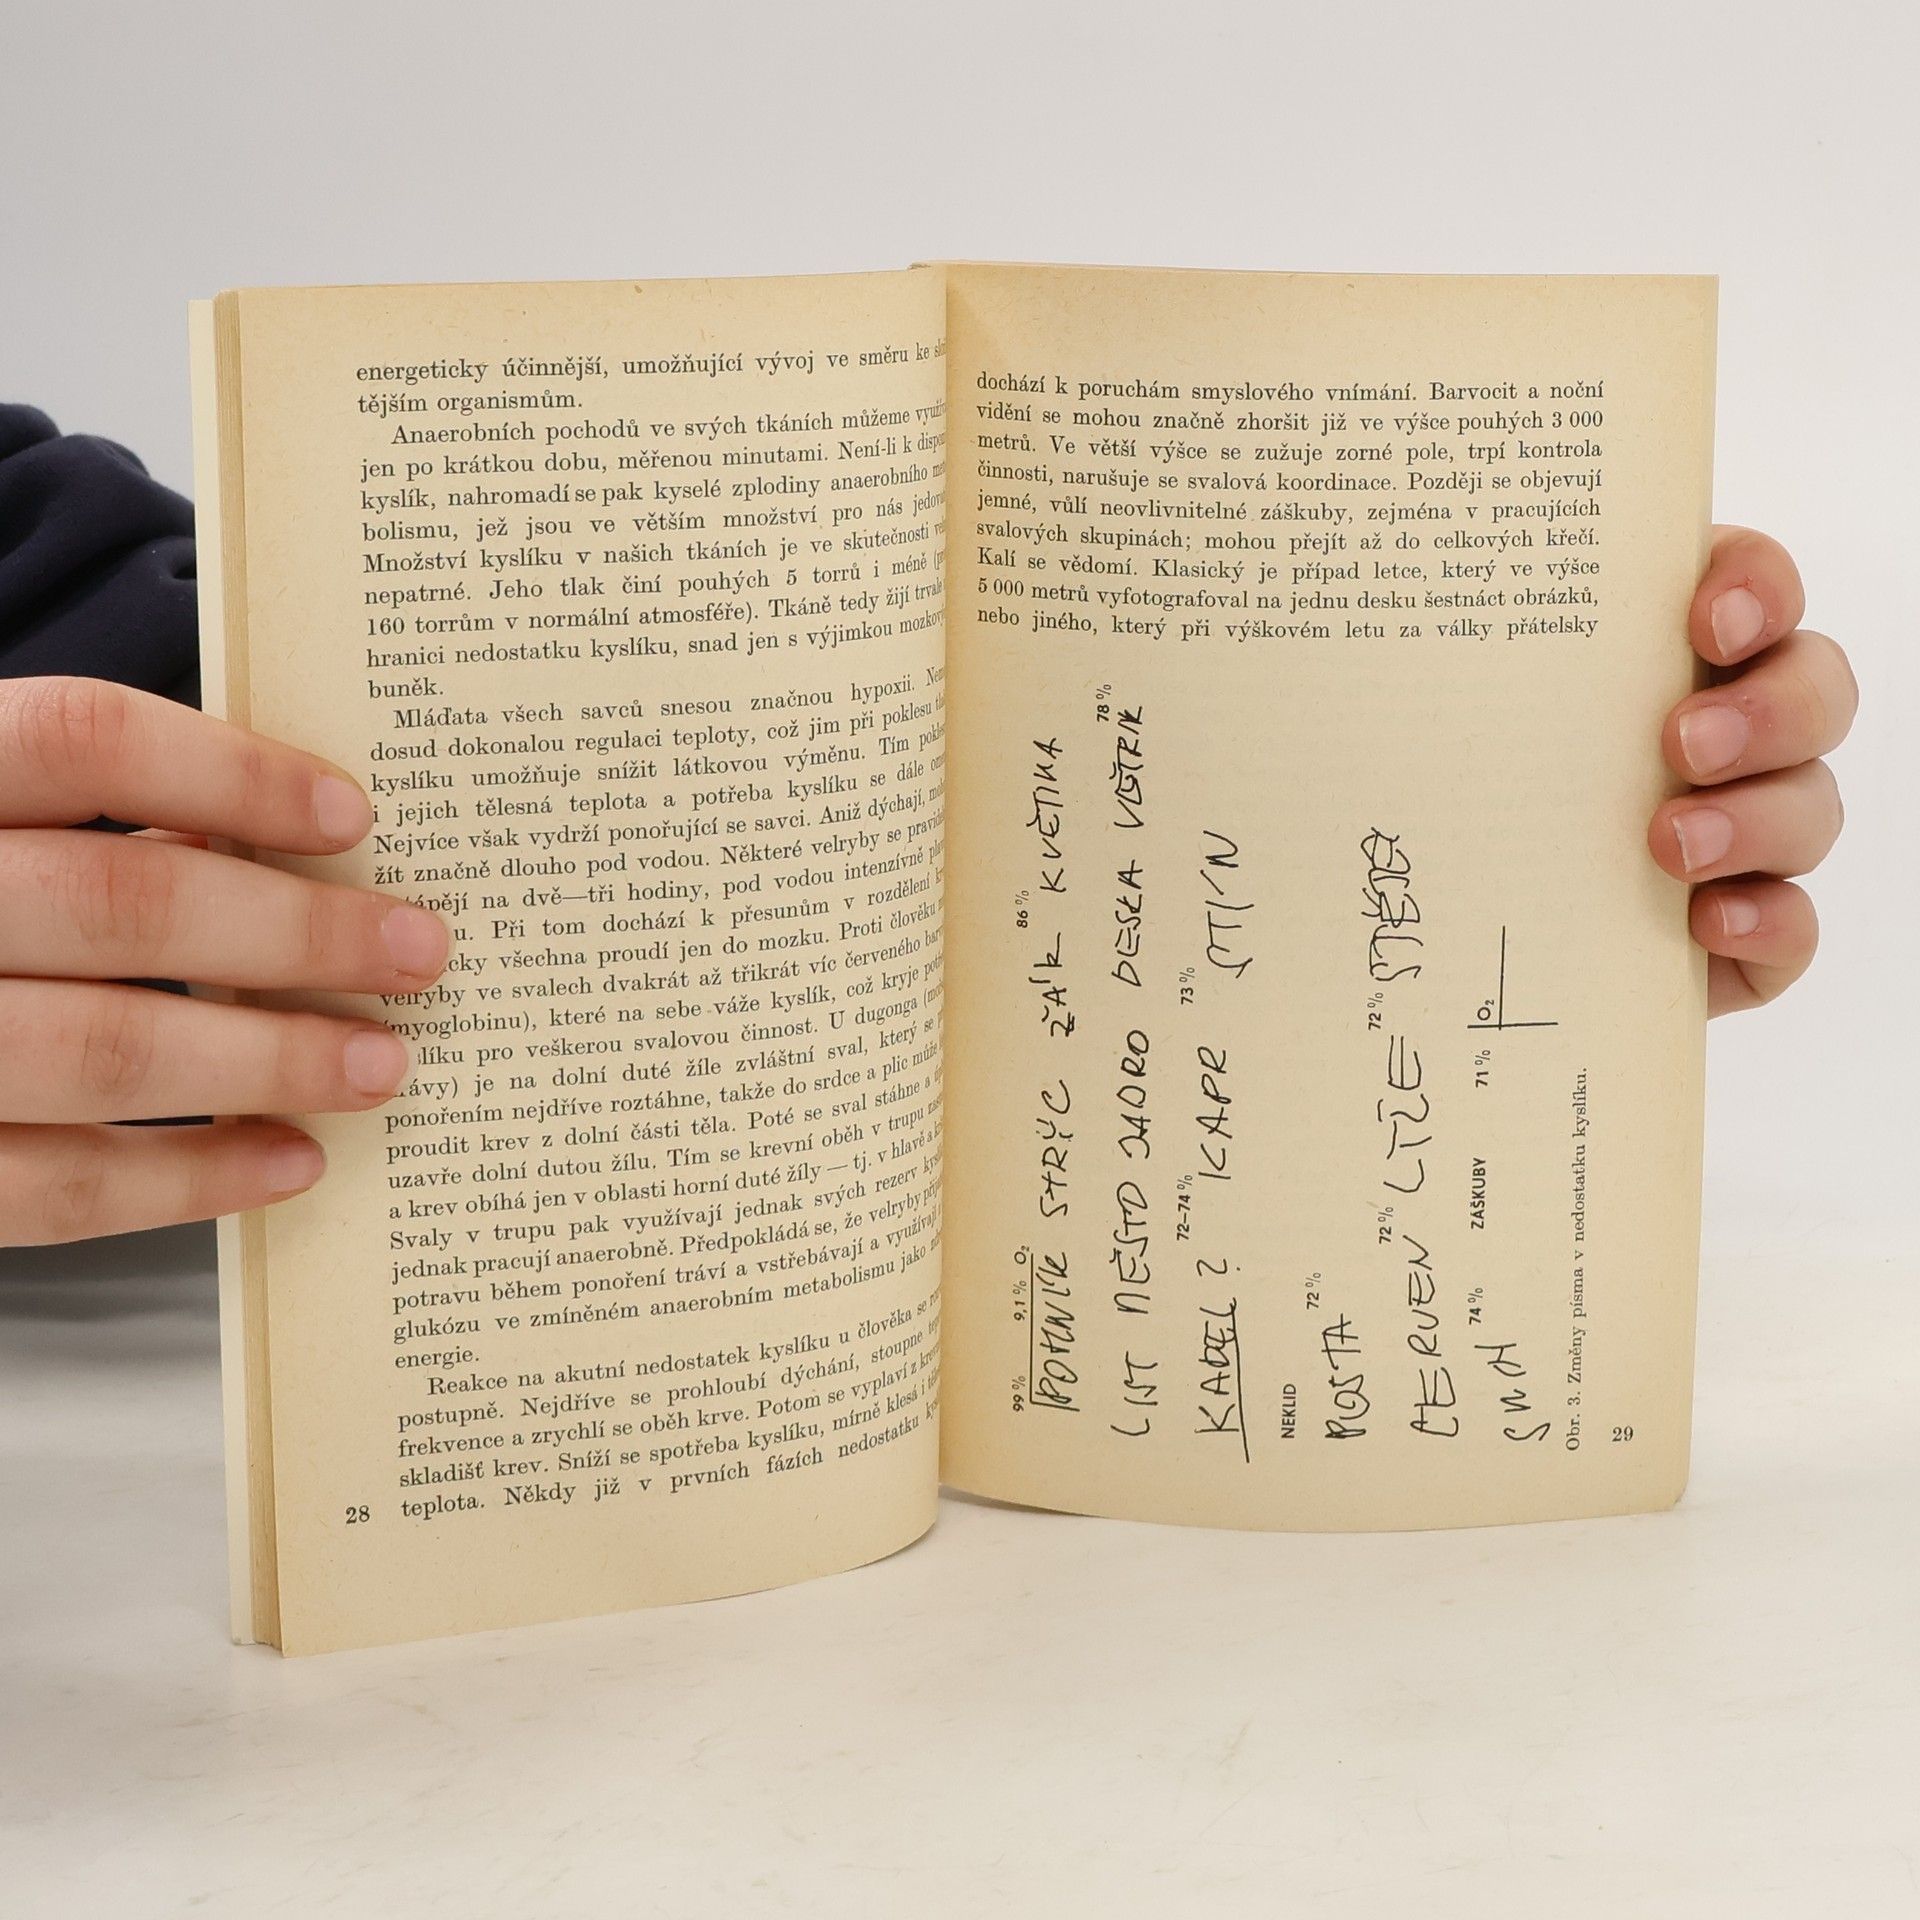 energeticky účinnější, umožňující vývoj ve směru ke
tějším organismům.
Anaerobních pochodů ve svých tkáních můžeme
jen po krátkou dobu, měřenou minutami. Není-li k
kyslík, nahromadí se pak kyselé zplodiny anaerobního
bolismu, jež jsou ve větším množství pro nás
Množství kyslíku v našich tkáních je ve skutečnosti
nepatrné. Jeho tlak činí pouhých 5 torrů i méně
160 torrům v normální atmosféře). Tkáně tedy žijí
hranici nedostatku kyslíku, snad jen s výjimkou
buněk.
Mláďata všech savců snesou značnou hypoxii.
dosud dokonalou regulaci teploty, což jim při poklesu
kyslíku umožňuje snížit látkovou výměnu. Tím
i jejich tělesná teplota a potřeba kyslíku se dále
Nejvíce však vydrží ponořující se savci. Aniž dýchají,
žít značně dlouho pod vodou. Některé velryby se
na dvě—tři hodiny, pod vodou intenzívně
Při tom dochází k přesunům v rozdělení
všechna proudí jen do mozku. Proti člověku
velryby ve svalech dvakrát až třikrát víc červeného
(myoglobinu), které na sebe váže kyslík, což kryje
pro veškerou svalovou činnost. U dugonga
je na dolní duté žíle zvláštní sval, který se
ponořením nejdříve roztáhne, takže do srdce a plic může
proudit krev z dolní části těla. Poté se sval stáhne a
uzavře dolní dutou žílu. Tím se krevní oběh v trupu
a krev obíhá jen v oblasti horní duté žíly — tj. v hlavě a
Svaly v trupu pak využívají jednak svých rezerv
jednak pracují anaerobně. Předpokládá se, že velryby
potravu během ponoření tráví a vstřebávají a využívají
glukózu ve zmíněném anaerobním metabolismu jako
energie.
Reakce na akutní nedostatek kyslíku u člověka se
postupně. Nejdříve se prohloubí dýchání, stoupne
frekvence a zrychlí se oběh krve. Potom se vyplaví z
skladišť krev. Sníží se spotřeba kyslíku, mírně klesá i
teplota. Někdy již v prvních fázích nedostatku
28
dochází k poruchám smyslového vnímání. Barvocit a noční
vidění se mohou značně zhoršit již ve výšce pouhých 3 000
metrů. Ve větší výšce se zužuje zorné pole, trpí kontrola
činnosti, narušuje se svalová koordinace. Později se objevují
jemné, vůlí neovlivnitelné záškuby, zejména v pracujících
svalových skupinách; mohou přejít až do celkových křečí.
Kalí se vědomí. Klasický je případ letce, který ve výšce
5 000 metrů vyfotografoval na jednu desku šestnáct obrázků,
nebo jiného, který při výškovém letu za války přátelsky
99 % 9,1 % O₂ 86 %
STRÝC KVĚTINA
78 %
LIST MĚSTO JADRO DESKA
72–74 % 73 %
KABEL ? KAPR STIN
NEKLID 72 %
POSTA
72 % 72 %
CERVEN
74 % ZÁŠKUBY 71 % O₂
Obr. 3. Změny písma v nedostatku kyslíku.
29